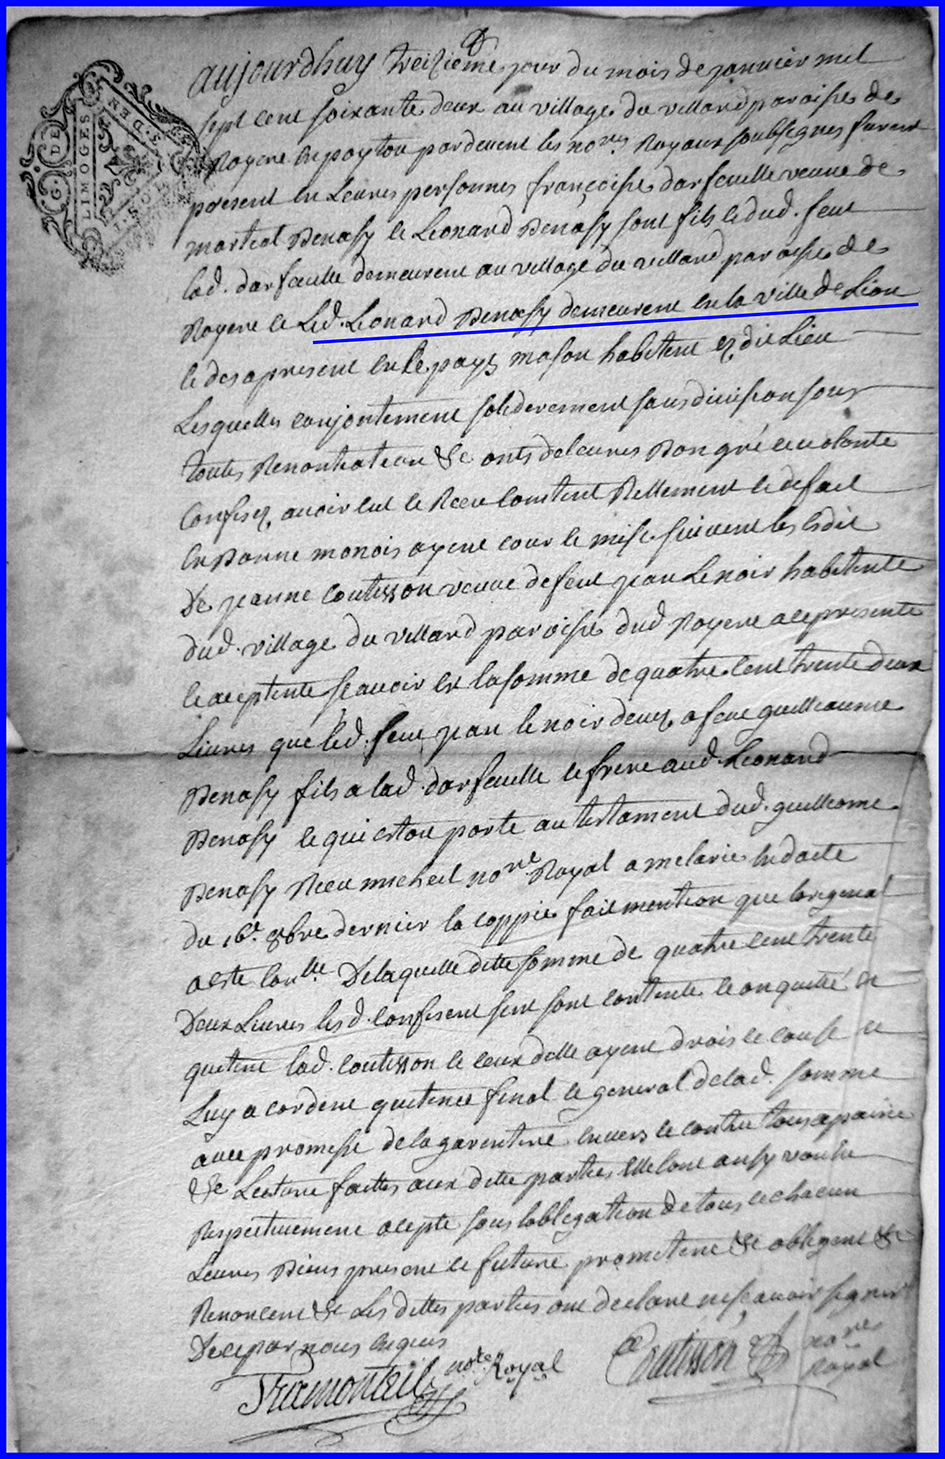 G. DE
LIMOGES
aujourdhuy treizieme jour du mois de janvier mil
sept cent soixante deux au village du villard paroisse de
Royere en poytou pardevent les nores Royaux soubsignes furent
present en Leures personnes francoise darfeuille veuve de
martial Benassy le Leonard Benassy sont fils le dud. feu
lad. darfeuille demeurent au village du villard paroisse de
Royere le Led. Leonard Benassy demeurent en la ville de Lion
le des apresent en le pays mason habitent es dit Lieu
Lesquelles conjontement soliderement sans division sous
toutes Renontiation &c onts de leures Bon gré et volonte
Confises avoir eut le Receu contient Rellement le de fait
en Bonne monois ayent cour le mise suivent les Edit
De jeanne Coutisson veuve de feu jean Lenoir habitente
dud. village du villard paroisse dud Royere a ce presente
le aceptente scavoir est la somme de quatre cent trente deux
Livres que led. feu jean lenoir devez a feu guilleaume
Benassy fils a lad. darfeuille le frere aud. Leonard
Benassy le qui estou porte au testament dud. guilleome
Benassy Receu micheil nore Royal a melarie en dacte
du 16e. 8bre dernier la coppie fait mention que loriginal
a este conlle. De laquelle ditte somme de quatre cent trente
Deux Livres lesd. confisent sen sont contente le on quitté et
quitent lad. Coutisson le ceux delle ayent drois et cause et
Luy acordent quitence final le general de lad. somme
avec promesse de la garentire envers le contre tous a paine
&c Lecture faittes aux ditte parties Elle lont ausy voulu
Respectivement acepte sous loblegation de tous et chacun
Leures Biens present et future prometent &c obligent &c
Renoncent &c Les dittes parties ont declaré ne scavoir signer
De ce par nous enquis
Tramonteil note. Royal
Coutisson
nores
Royal